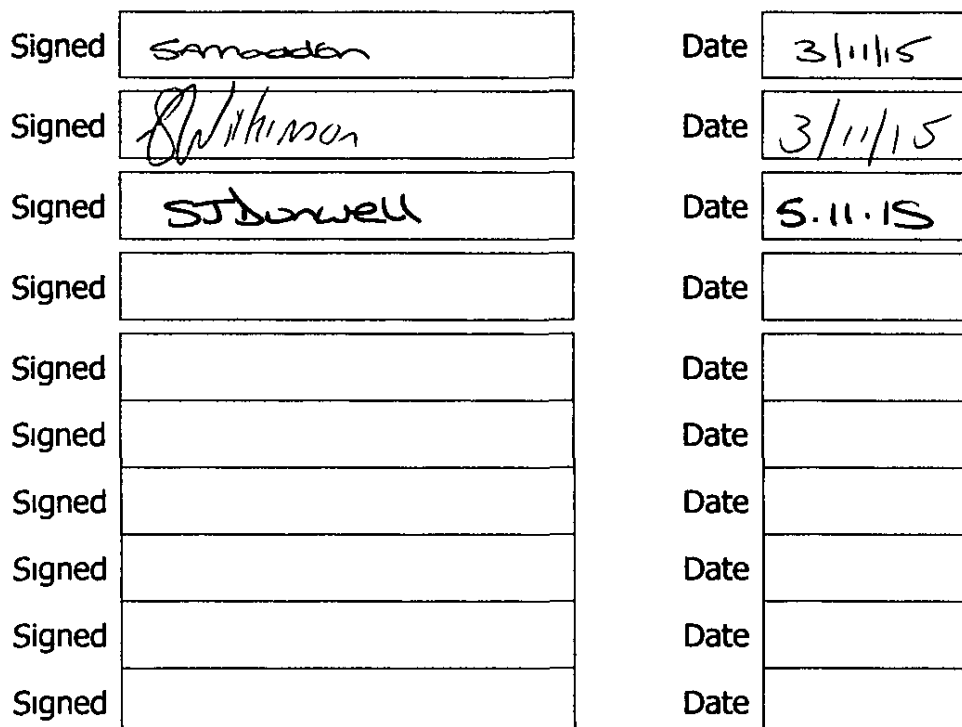 Signed Date 3/11/15
Signed Wilkinson Date 3/11/15
Signed Date 5.11.15
Signed Date
Signed Date
Signed Date
Signed Date
Signed Date
Signed Date
Signed Date